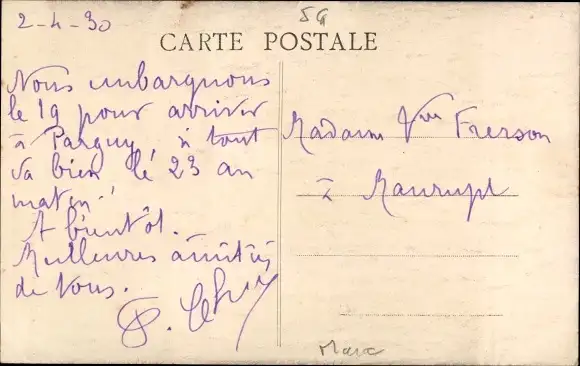 2-4-30
CARTE POSTALE
Nous embarquons
le 19 pour arriver
à Pargny, si tout
va bien le 23 au
matin.
A bientôt.
Meilleures amitiés
de tous.
Madame Vve Frerson
à Maurupt